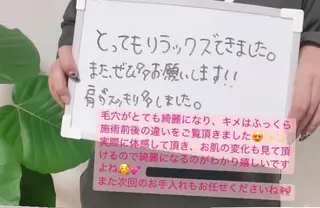 とってもリラックスできました。
また、ぜひお願いします!!
肩がスッキリしました。
毛穴がとても綺麗になり、キメはふっくら
施術前後の違いをご覧頂きました😍✨✨
実際に体感して頂き、お肌の変化も見て頂
けるので綺麗になるのがわかり嬉しいです
よね🥰💕
また次回のお手入れもお任せくださいね🎀